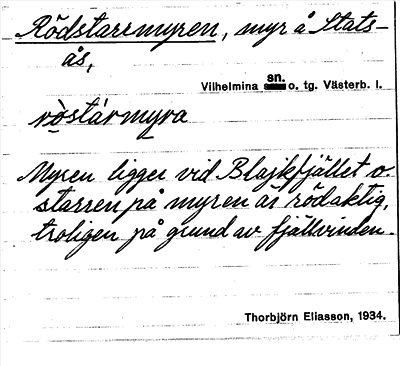 Rödstarrmyren, myr å Stats-
ås,
Vilhelmina sn. o. tg. Västerb. l.
rö̀stármyra
Myren ligger vid Blajkfjället o
starren på myren är rödaktig,
troligen på grund av fjällvinden.
Thorbjörn Eliasson, 1934.